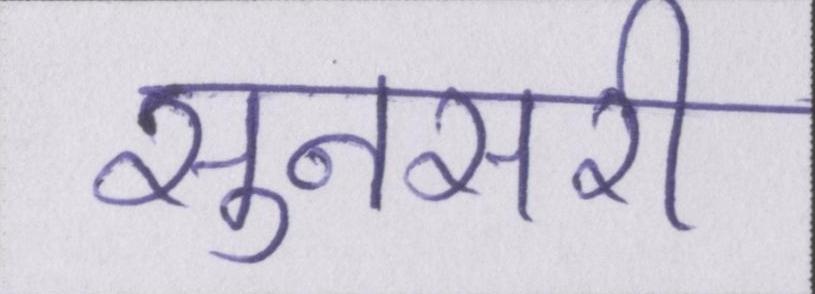 सुनसरी